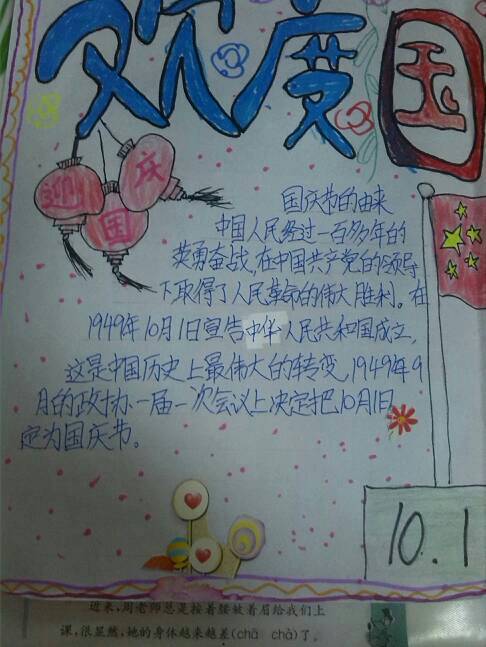 欢度国
迎国庆
国庆节的由来
中国人民经过一百多年的
英勇奋战,在中国共产党的领导
下取得了人民革命的伟大胜利。在
1949年10月1日宣告中华人民共和国成立,
这是中国历史上最伟大的转变,1949年9
月的政协一届一次会议上决定把10月1日
定为国庆节。
10.1
近来,周老师总是按着腰皱着眉给我们上
课,很显然,她的身体越来越差(chā chà)了。